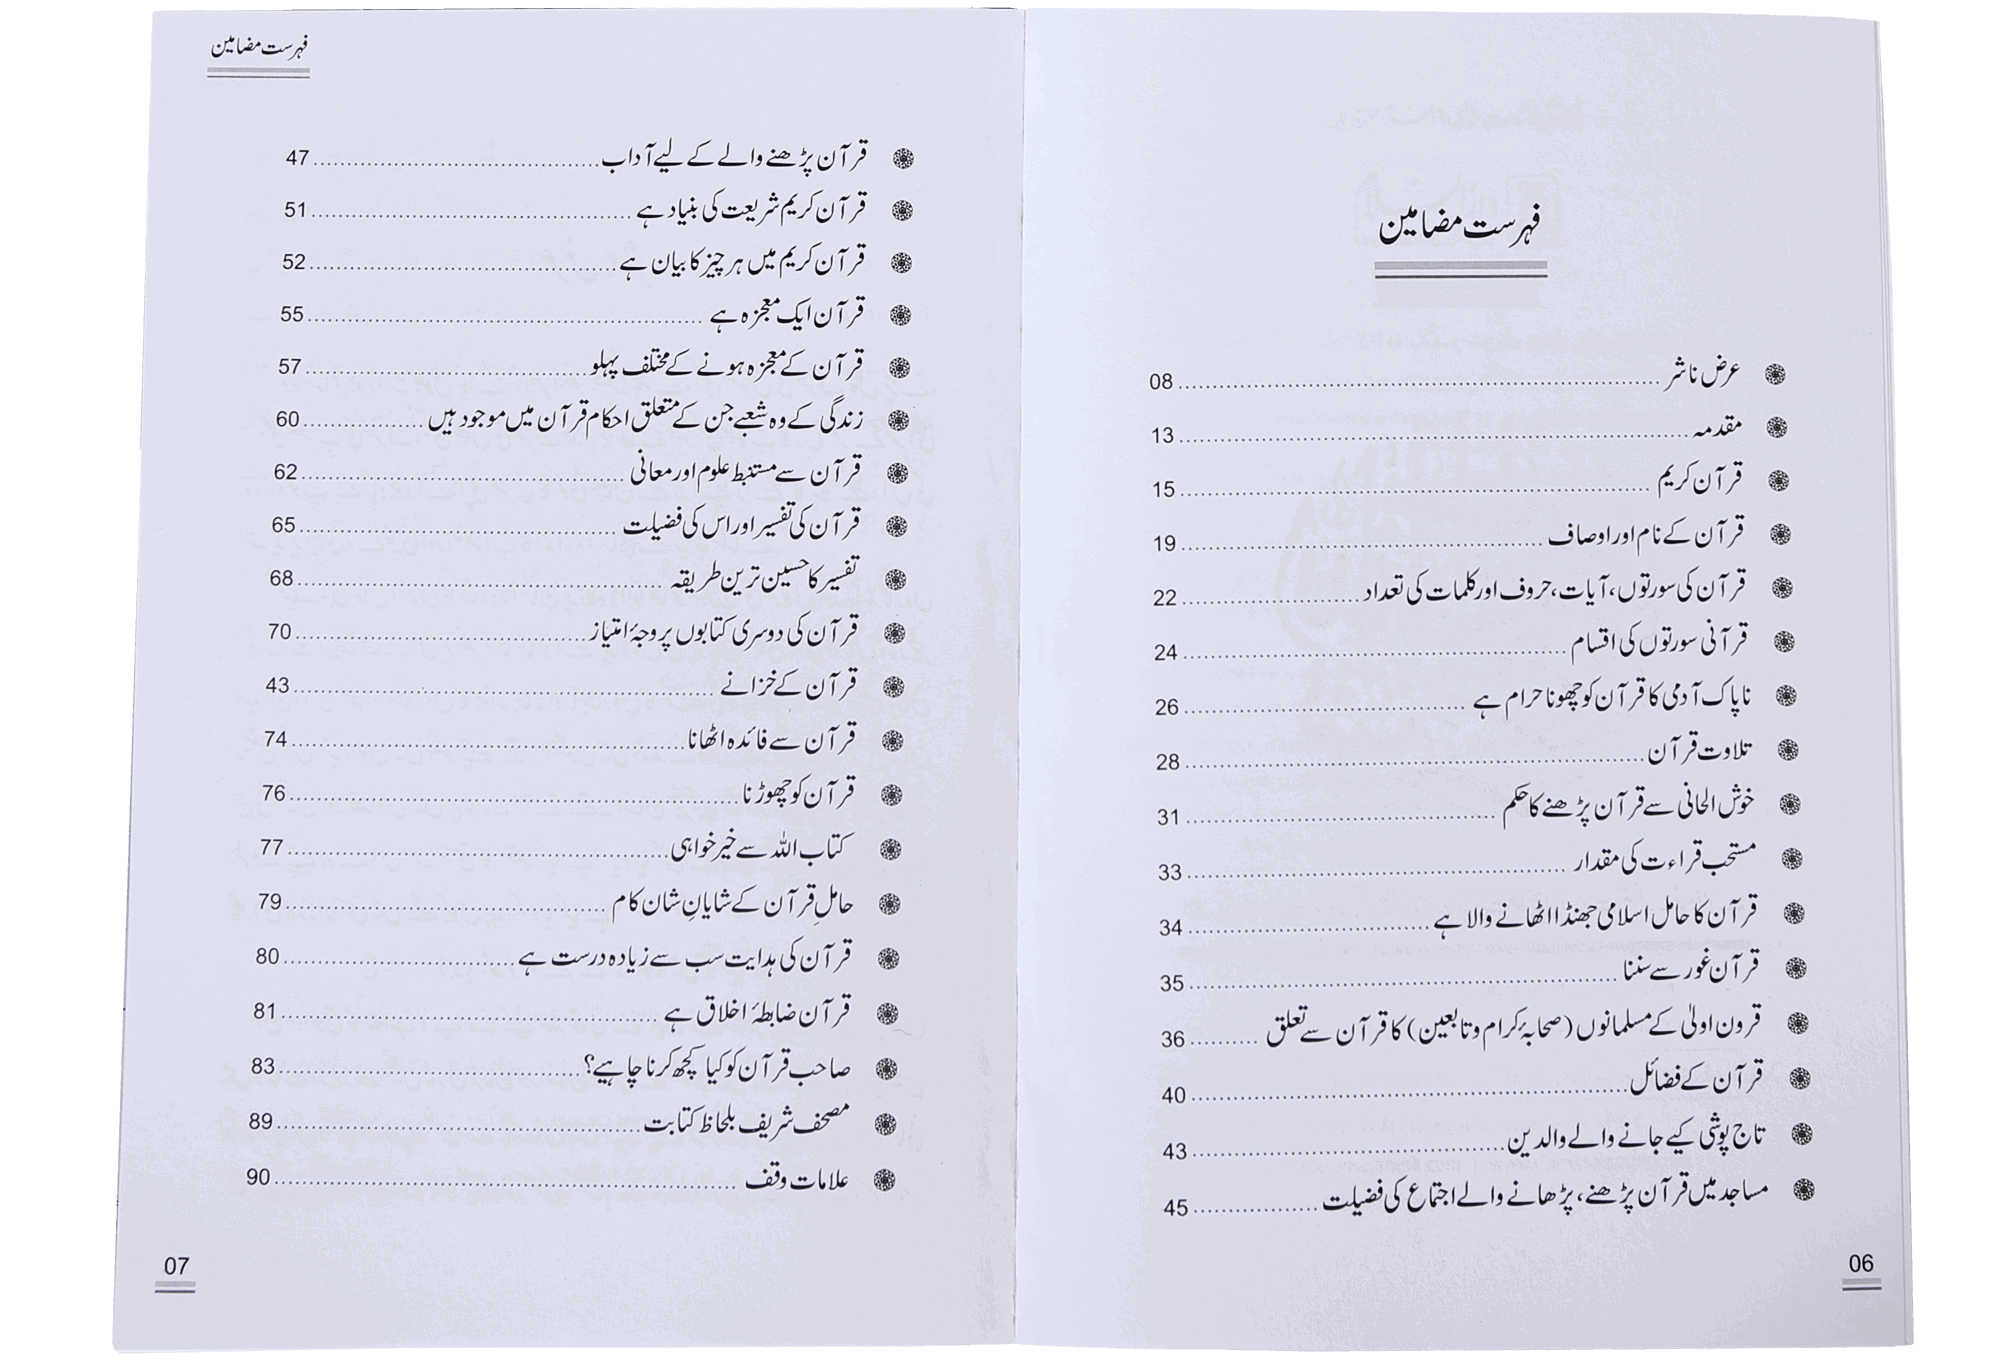 فہرست مضامین
عرض ناشر ........ 08
مقدمہ ........ 13
قرآن کریم ........ 15
قرآن کے نام اور اوصاف ........ 19
قرآن کی سورتوں، آیات، حروف اور کلمات کی تعداد ........ 22
قرآنی سورتوں کی اقسام ........ 24
ناپاک آدمی کا قرآن کو چھونا حرام ہے ........ 26
تلاوت قرآن ........ 28
خوش الحانی سے قرآن پڑھنے کا حکم ........ 31
مستحب قراءت کی مقدار ........ 33
قرآن کا حامل اسلامی جھنڈا اٹھانے والا ہے ........ 34
قرآن غور سے سننا ........ 35
قرون اولیٰ کے مسلمانوں (صحابۂ کرام و تابعین) کا قرآن سے تعلق ........ 36
قرآن کے فضائل ........ 40
تاج پوشی کیے جانے والے والدین ........ 43
مساجد میں قرآن پڑھنے، پڑھانے والے اجتماع کی فضیلت ........ 45
06
فہرست مضامین
قرآن پڑھنے والے کے لیے آداب ........ 47
قرآن کریم شریعت کی بنیاد ہے ........ 51
قرآن کریم میں ہر چیز کا بیان ہے ........ 52
قرآن ایک معجزہ ہے ........ 55
قرآن کے معجزہ ہونے کے مختلف پہلو ........ 57
زندگی کے وہ شعبے جن کے متعلق احکام قرآن میں موجود ہیں ........ 60
قرآن سے مستنبط علوم اور معانی ........ 62
قرآن کی تفسیر اور اس کی فضیلت ........ 65
تفسیر کا حسین ترین طریقہ ........ 68
قرآن کی دوسری کتابوں پر وجۂ امتیاز ........ 70
قرآن کے خزانے ........ 43
قرآن سے فائدہ اٹھانا ........ 74
قرآن کو چھوڑنا ........ 76
کتاب اللہ سے خیر خواہی ........ 77
حاملِ قرآن کے شایانِ شان کام ........ 79
قرآن کی ہدایت سب سے زیادہ درست ہے ........ 80
قرآن ضابطۂ اخلاق ہے ........ 81
صاحب قرآن کو کیا کچھ کرنا چاہیے؟ ........ 83
مصحف شریف بلحاظ کتابت ........ 89
علامات وقف ........ 90
07